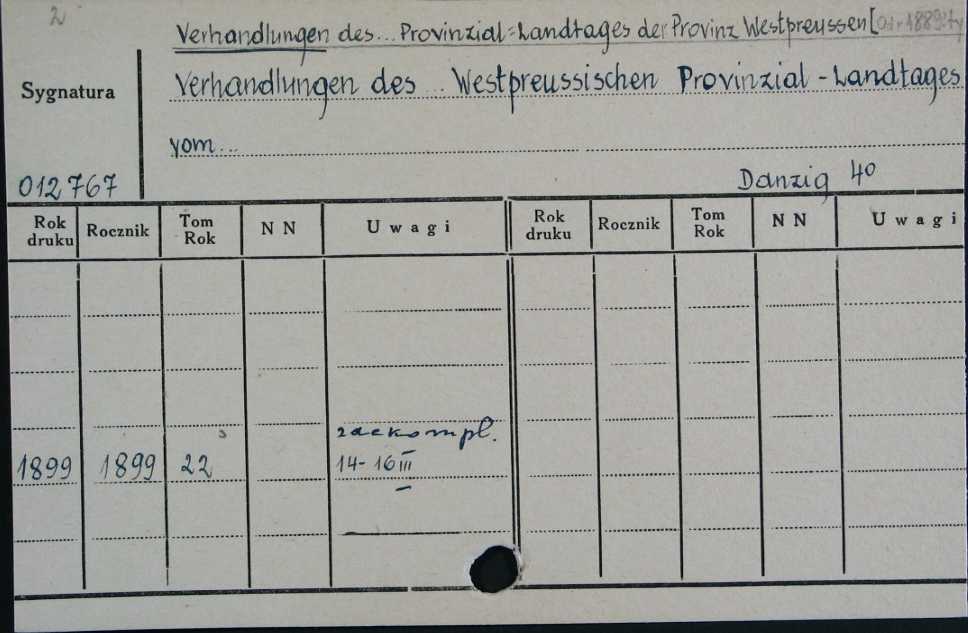 2
Verhandlungen des... Provinzial-Landtages der Provinz Westpreussen [
Sygnatura
Verhandlungen des ... Westpreussischen Provinzial-Landtages
vom...
012767
Danzig 4°
Rok druku Rocznik Tom Rok NN Uwagi Rok druku Rocznik Tom Rok NN Uwagi
zdekompl.
1899 1899 22 14-16 III